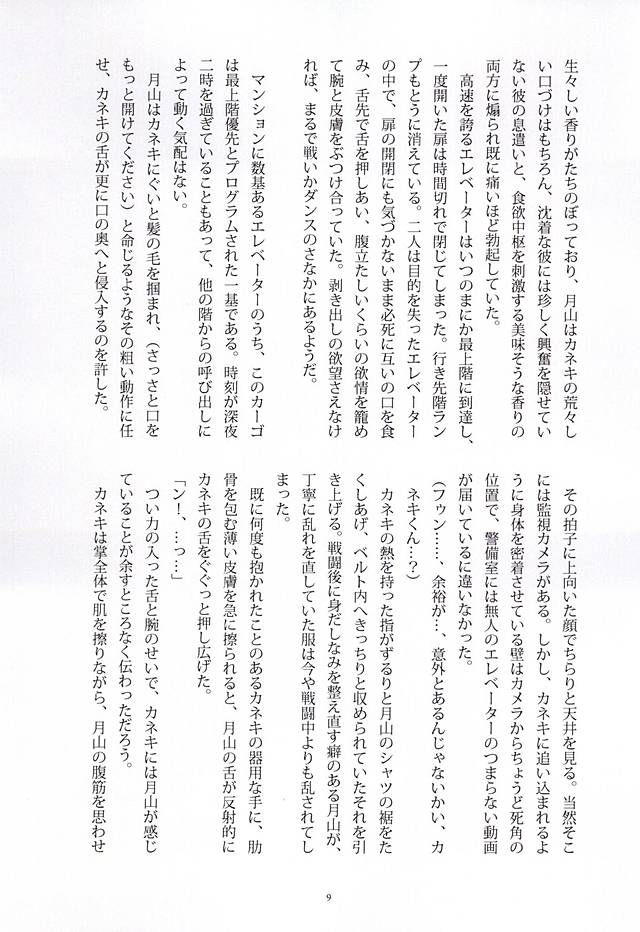 生々しい香りがたちのぼっており、月山はカネキの荒々し
い口づけはもちろん、沈着な彼には珍しく興奮を隠せてい
ない彼の息遣いと、食欲中枢を刺激する美味そうな香りの
両方に煽られ既に痛いほど勃起していた。
高速を誇るエレベーターはいつのまにか最上階に到達し、
一度開いた扉は時間切れで閉じてしまった。行き先階ラン
プもとうに消えている。二人は目的を失ったエレベーター
の中で、扉の開閉にも気づかないまま必死に互いの口を食
み、舌先で舌を押しあい、腹立たしいくらいの欲情を籠め
て腕と皮膚をぶつけ合っていた。剥き出しの欲望さえなけ
れば、まるで戦いかダンスのさなかにあるようだ。
マンションに数基あるエレベーターのうち、このカーゴ
は最上階優先とプログラムされた一基である。時刻が深夜
二時を過ぎていることもあって、他の階からの呼び出しに
よって動く気配はない。
月山はカネキにぐいと髪の毛を掴まれ、（さっさと口を
もっと開けてください）と命じるようなその粗い動作に任
せ、カネキの舌が更に口の奥へと侵入するのを許した。
その拍子に上向いた顔でちらりと天井を見る。当然そこ
には監視カメラがある。しかし、カネキに追い込まれるよ
うに身体を密着させている壁はカメラからちょうど死角の
位置で、警備室には無人のエレベーターのつまらない動画
が届いているに違いなかった。
（フゥン……、余裕が…、意外とあるんじゃないかい、カ
ネキくん…？）
カネキの熱を持った指がずるりと月山のシャツの裾をた
くしあげ、ベルト内へきっちりと収められていたそれを引
き上げる。戦闘後に身だしなみを整え直す癖のある月山が、
丁寧に乱れを直していた服は今や戦闘中よりも乱されてし
まった。
既に何度も抱かれたことのあるカネキの器用な手に、肋
骨を包む薄い皮膚を急に擦られると、月山の舌が反射的に
カネキの舌をぐぐっと押し広げた。
「ン！、…っ…」
つい力の入った舌と腕のせいで、カネキには月山が感じ
ていることが余すところなく伝わっただろう。
カネキは掌全体で肌を擦りながら、月山の腹筋を思わせ
9